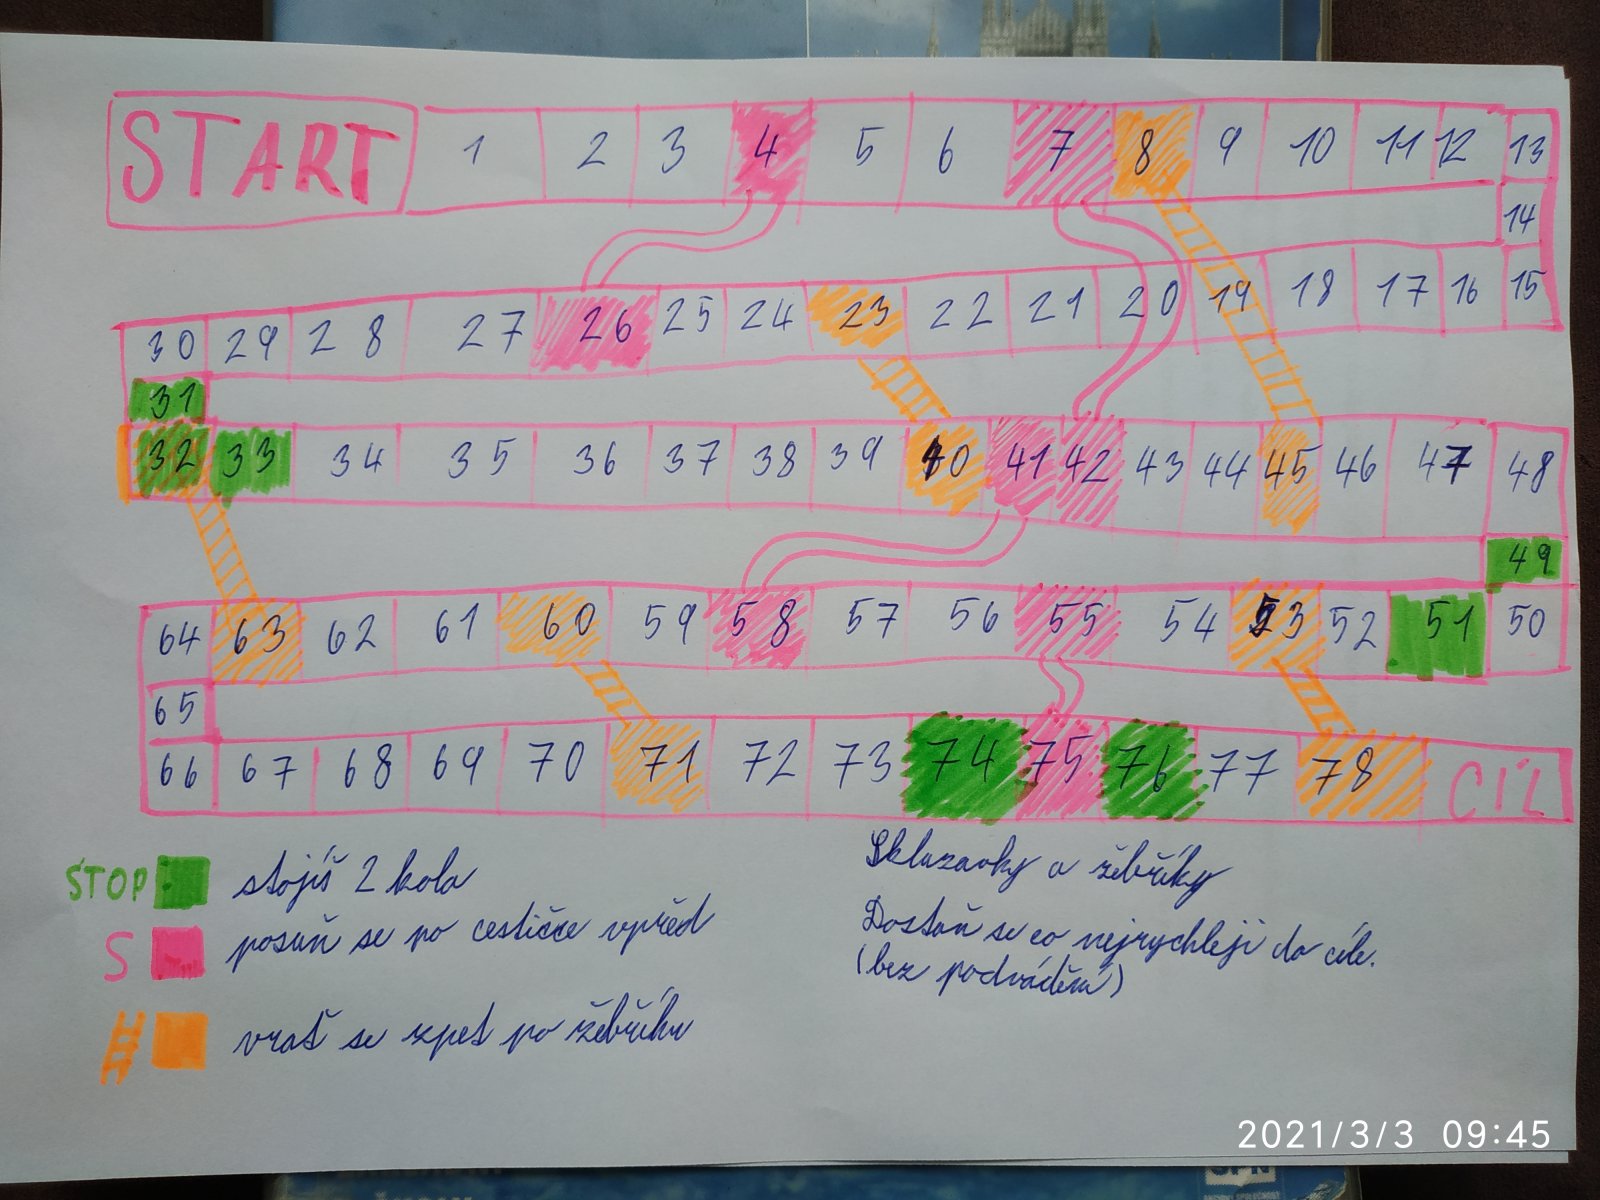 START 1 2 3 4 5 6 7 8 9 10 11 12 13
14
30 29 28 27 26 25 24 23 22 21 20 19 18 17 16 15
31
32 33 34 35 36 37 38 39 40 41 42 43 44 45 46 47 48
49
64 63 62 61 60 59 58 57 56 55 54 53 52 51 50
65
66 67 68 69 70 71 72 73 74 75 76 77 78 CÍL
STOP stojíš 2 kola
S posuň se po cestičce vpřed
vrať se zpet po žebříku
Skluzavky a žebříky
Dostaň se co nejrychleji do cíle.
(bez podvádění)
2021/3/3 09:45